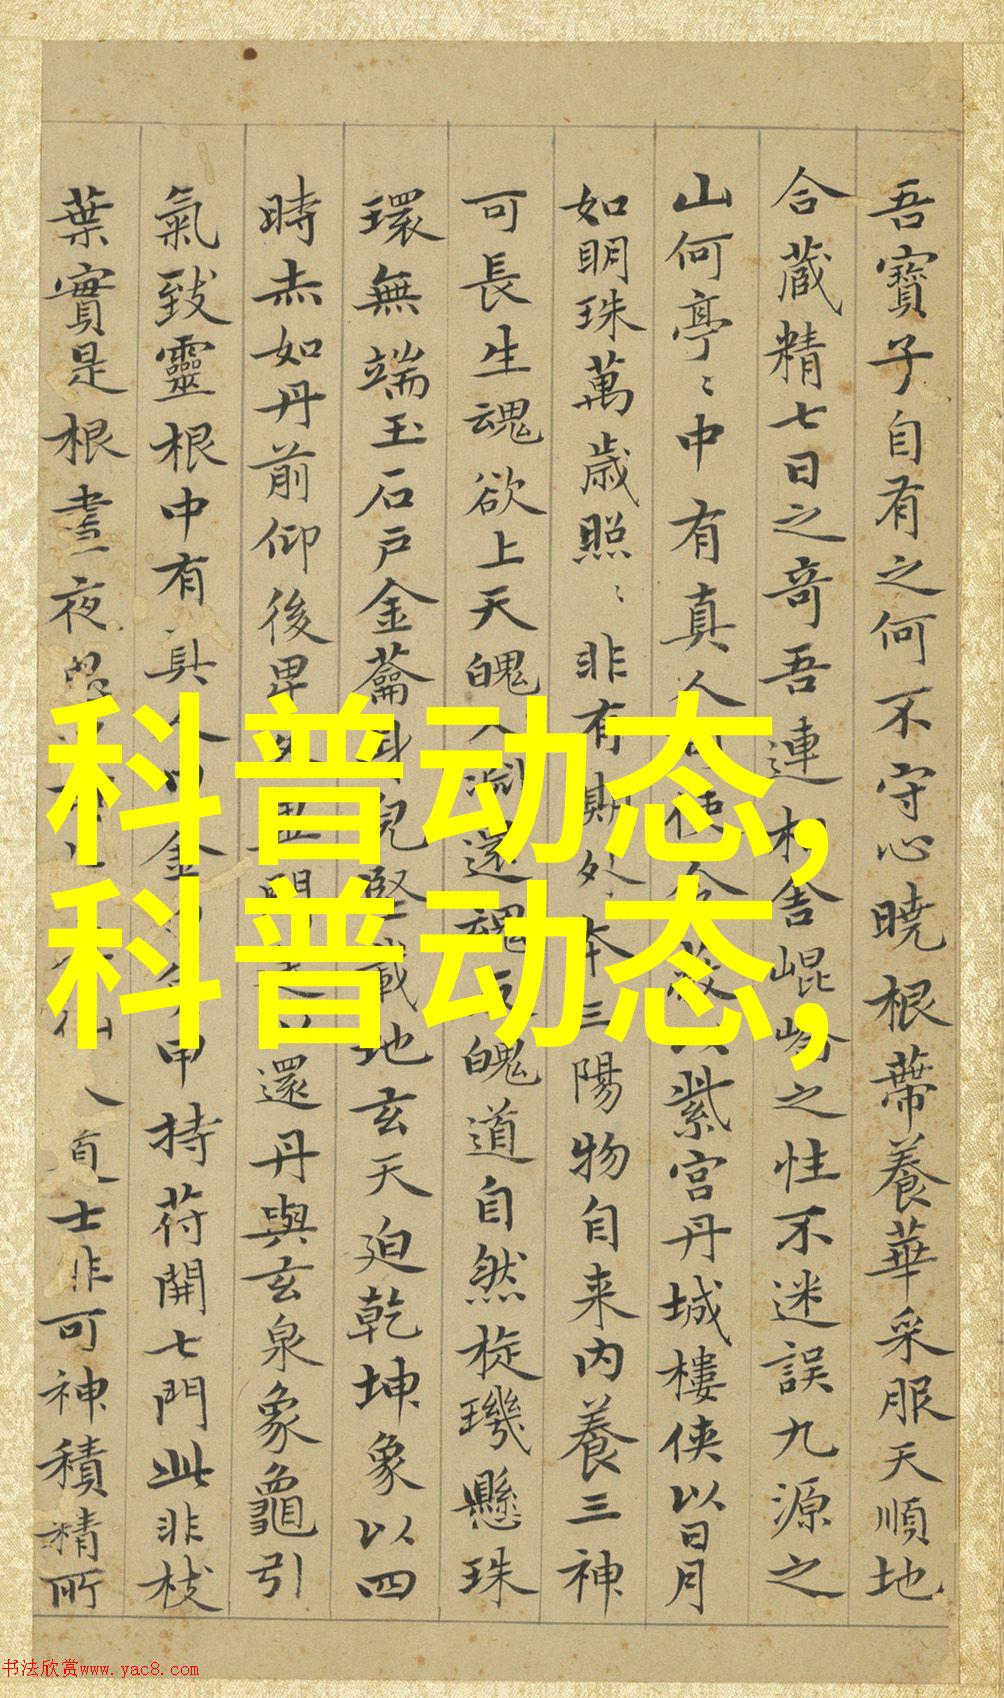 吾寶子自有之何不守心曉根蒂養華采服天順地
合藏精七日之奇吾連相舍崐崘之性不迷誤九源之
山何亭〻中有真人使令紫宮丹城樓俠以日月
如明珠萬歲照〻非有期处本三陽物自来内養三神
可長生魂欲上天魄入還魂魄道自然旋璣懸珠
環無端玉石户金籥身堅載地玄天迫乾坤象以四
時赤如丹前仰後卑還丹與玄泉象龜引
氣致靈根中有真金甲持苻開七門此非枝
葉實是根晝夜士非可神積精所
科普动态,
科普动态,
书法欣赏www.yac8.com